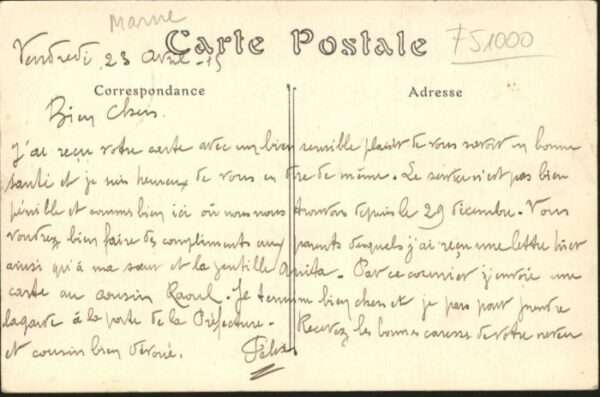 Marne
Carte Postale
F51000
Vendredi 23 Avril - 15
Correspondance
Adresse
Bien Chers.
J'ai reçu votre carte avec un bien sensible plaisir de vous savoir en bonne
santé et je suis heureux de vous en dire de même. Le service n'est pas bien
pénible et sommes bien ici où nous nous trouvons depuis le 29 décembre. Vous
voudrez bien faire des compliments aux parents desquels j'ai reçu une lettre hier
ainsi qu'à ma sœur et la gentille Anita. Par ce courrier j'envoie une
carte au cousin Raoul. Je termine bien chers et je pars pour prendre
la garde à la porte de la Préfecture. Recevez les bonnes caresses de votre neveu
et cousin bien dévoué. Felix